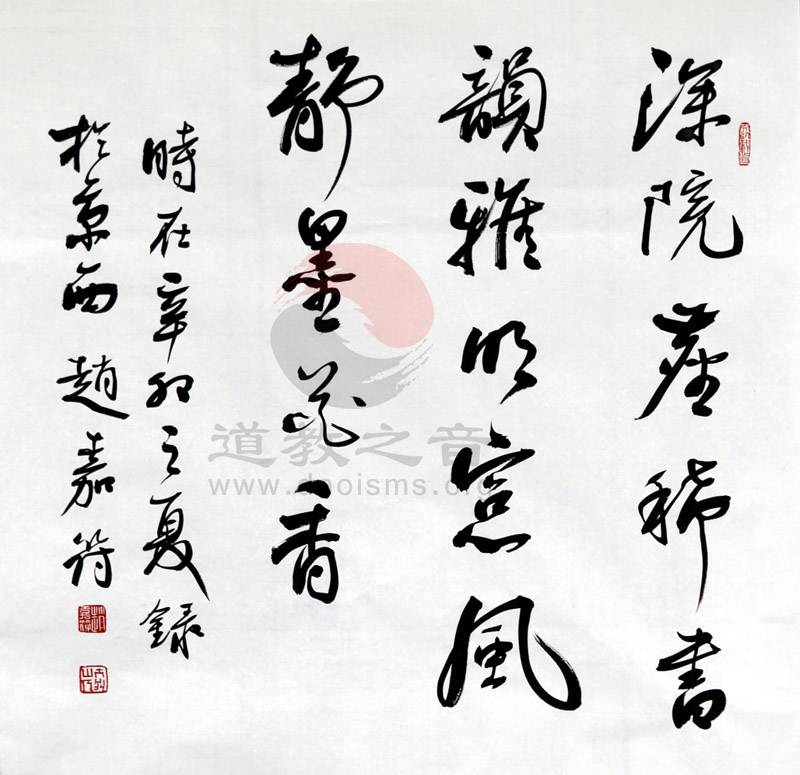 深院塵稀書
韻雅明窓風
靜墨花香
時在辛卯之夏錄
於京西趙嘉符
道教之音
www.daoisms.org